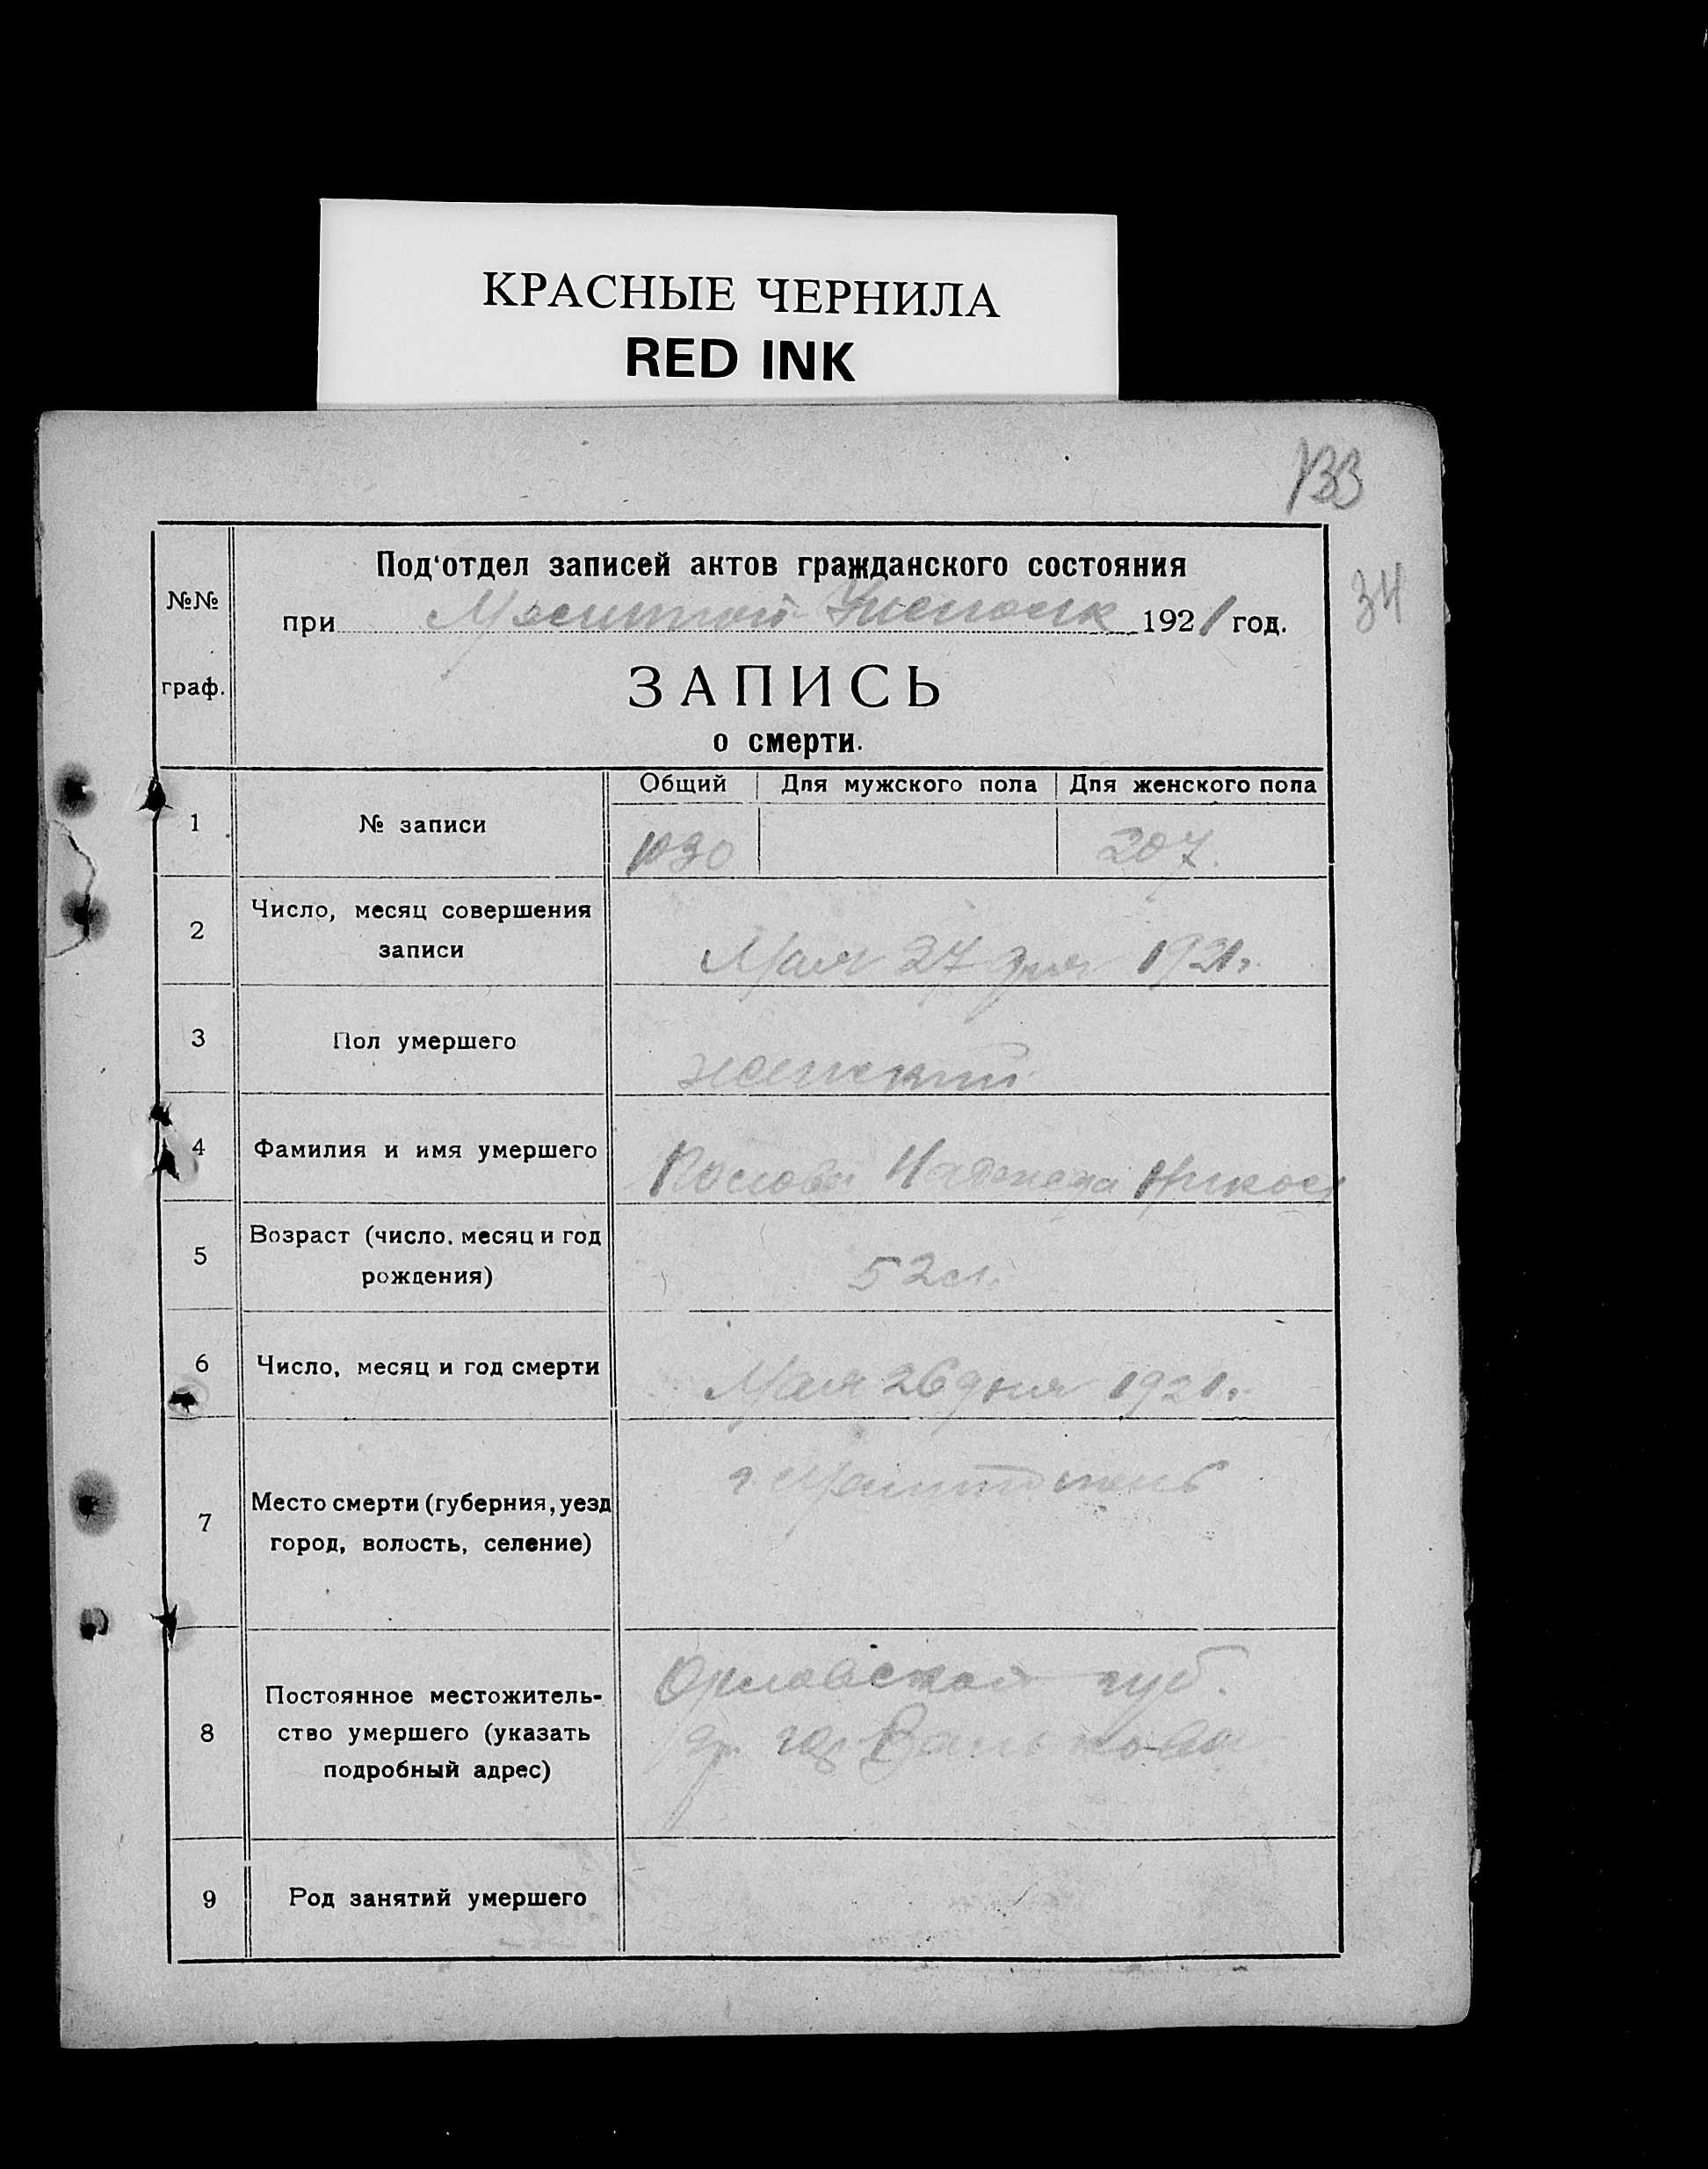 КРАСНЫЕ ЧЕРНИЛА
RED INK
133
34
№№
граф.
Под‘отдел записей актов гражданского состояния
при 1921 год.
ЗАПИСЬ
о смерти.
Общий Для мужского пола Для женского пола
1 № записи 207.
2 Число, месяц совершения
записи
Мая 27 дня 1921г.
3 Пол умершего женский
4 Фамилия и имя умершего Надежда
5 Возраст (число, месяц и год
рождения)
52 л.
6 Число, месяц и год смерти Мая 26 дня 1921г.
7 Место смерти (губерния, уезд
город, волость, селение)
г
8 Постоянное местожитель-
ство умершего (указать
подробный адрес)
Орловской губ.
9 Род занятий умершего